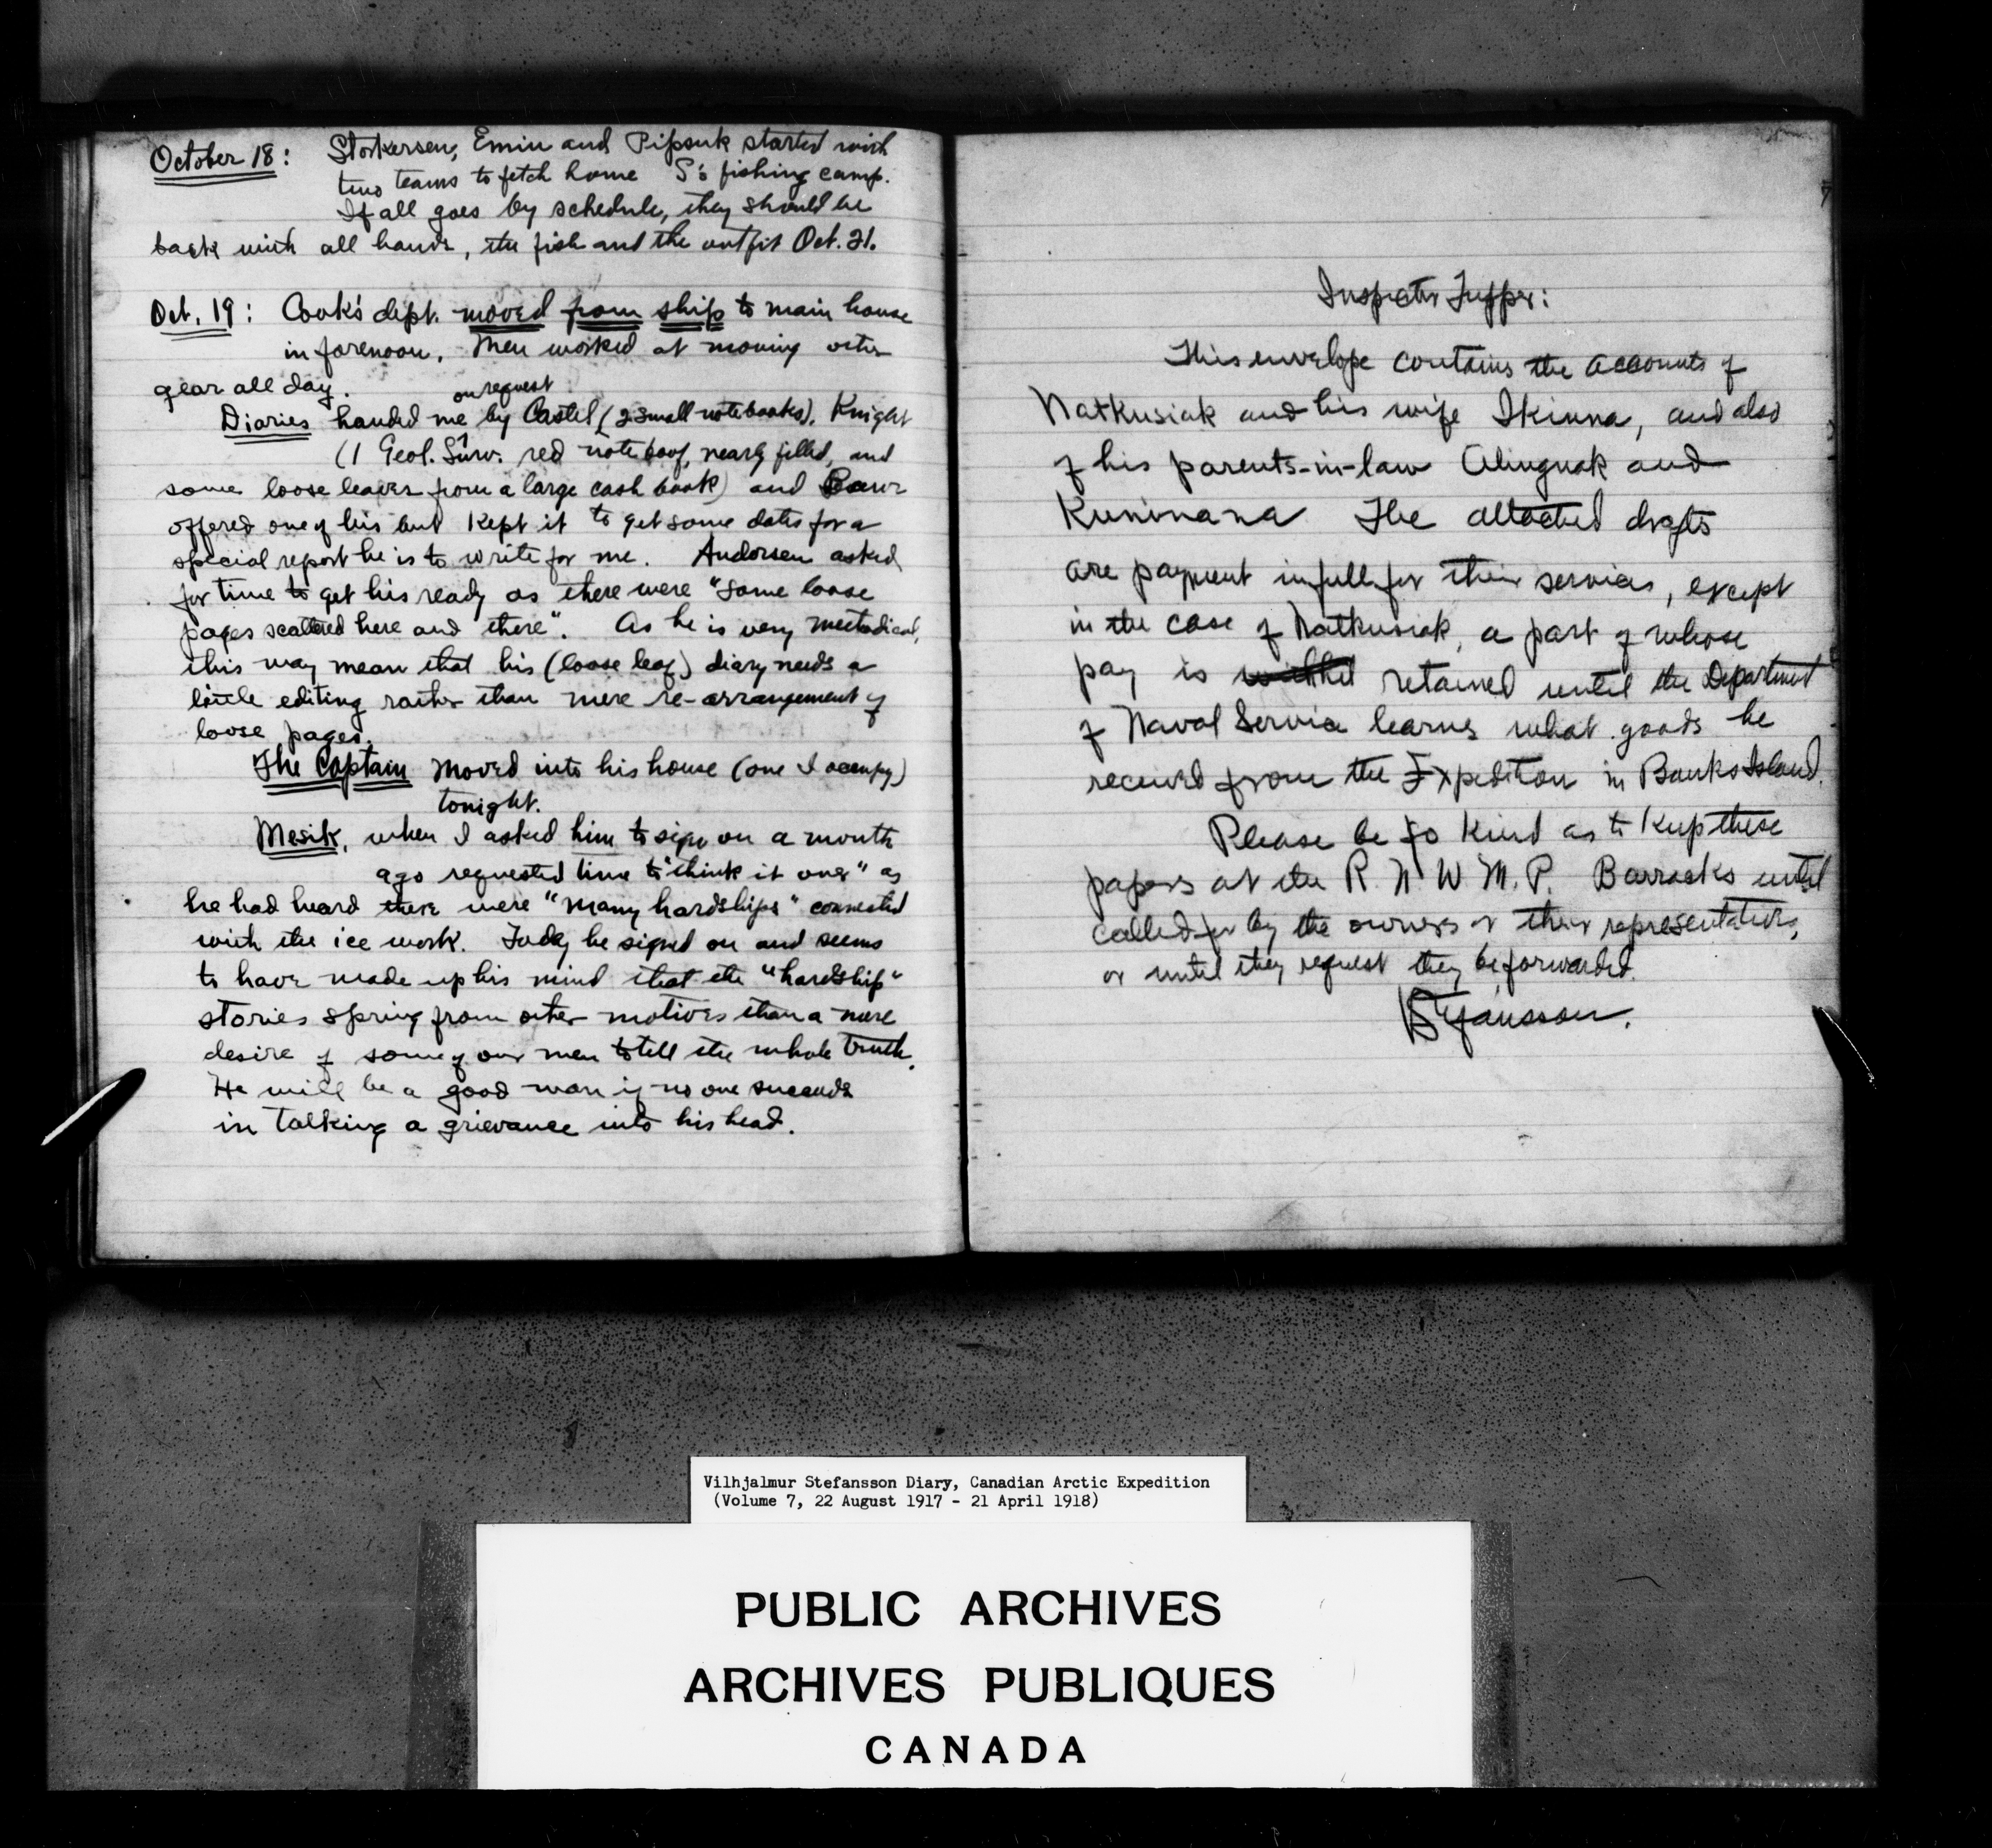 October 18: Storkersen, Emiu and Pipsuk started with
two teams to fetch home S's fishing camp.
If all goes by schedule, they should be
back with all hands, the fish and the outfit Oct. 21.
Oct. 19: Cook's dept. moved from ship to main house
in forenoon. Men worked at moving other
gear all day.
on request
Diaries handed me by Castel (2 small notebooks), Knight
(1 Geol. Surv. red notebook, nearly filled, and
some loose leaves from a large cash book) and
offered one of his but kept it to get some dates for a
special report he is to write for me. Andersen asked
for time to get his ready as there were "some loose
pages scattered here and there". As he is very methodical,
this may mean that his (loose leaf) diary needs a
little editing rather than mere re-arrangement of
loose pages.
The Captain moved into his house (one I occupy)
tonight.
Mesik, when I asked him to sign on a month
ago requested time to "think it over" as
he had heard there were "many hardships" connected
with the ice work. Today he signed on and seems
to have made up his mind that the "hardship"
stories spring from other motives than a mere
desire of some of our men to tell the whole truth.
He will be a good man if no one succeeds
in talking a grievance into his head.
Inspector Tupper:
This envelope contains the accounts of
Natkusiak and his wife Ikiuna, and also
of his parents-in-law Alingnak and
Kuninana The attached drafts
are payment in full for their services, except
in the case of Natkusiak, a part of whose
pay is withhel retained until the Department
of Naval Service learns what goods he
received from the Expedition in Banks Island.
Please be so kind as to keep these
papers at the R. N W M. P. Barracks until
called for by the owners or their representatives,
or until they request they be forwarded.
VStefansson.
Vilhjalmur Stefansson Diary, Canadian Arctic Expedition
(Volume 7, 22 August 1917 - 21 April 1918)
PUBLIC ARCHIVES
ARCHIVES PUBLIQUES
CANADA